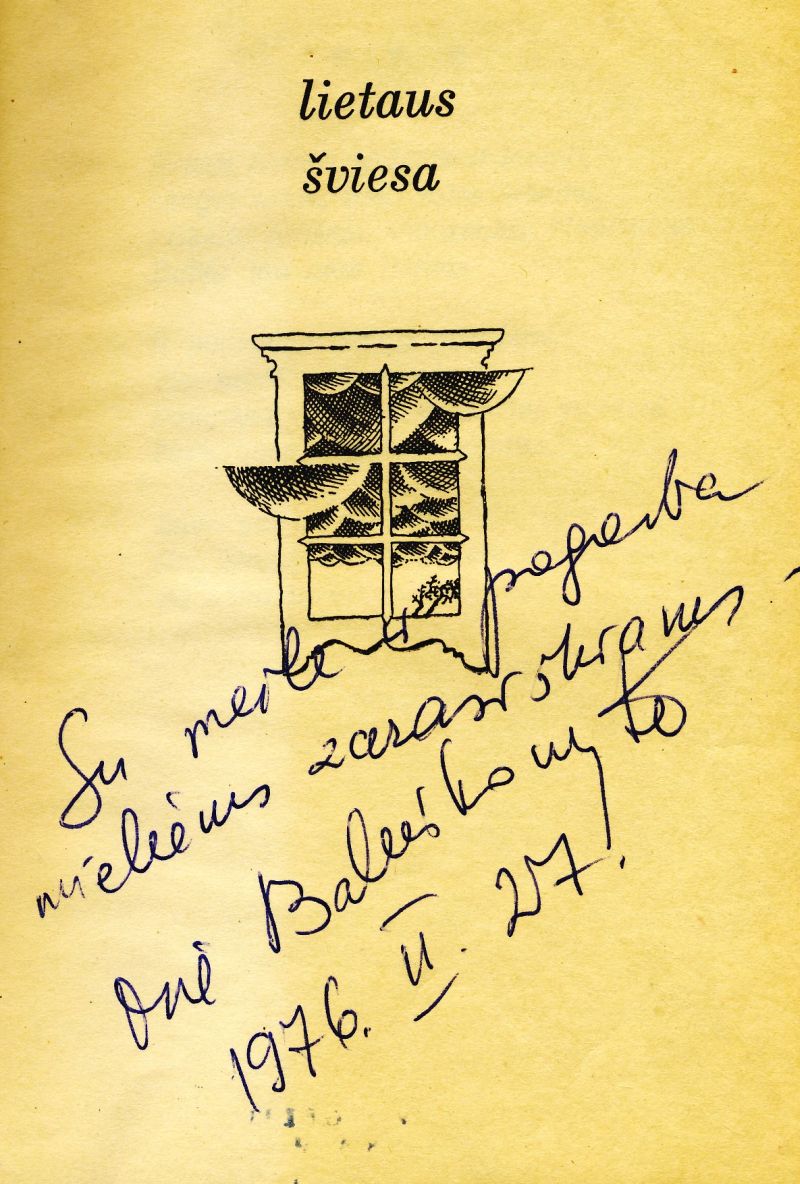 lietaus
šviesa
Su meile ir pagarba
mieliems zarasiškiams -
Onė Baliukonytė
1976. II. 27.